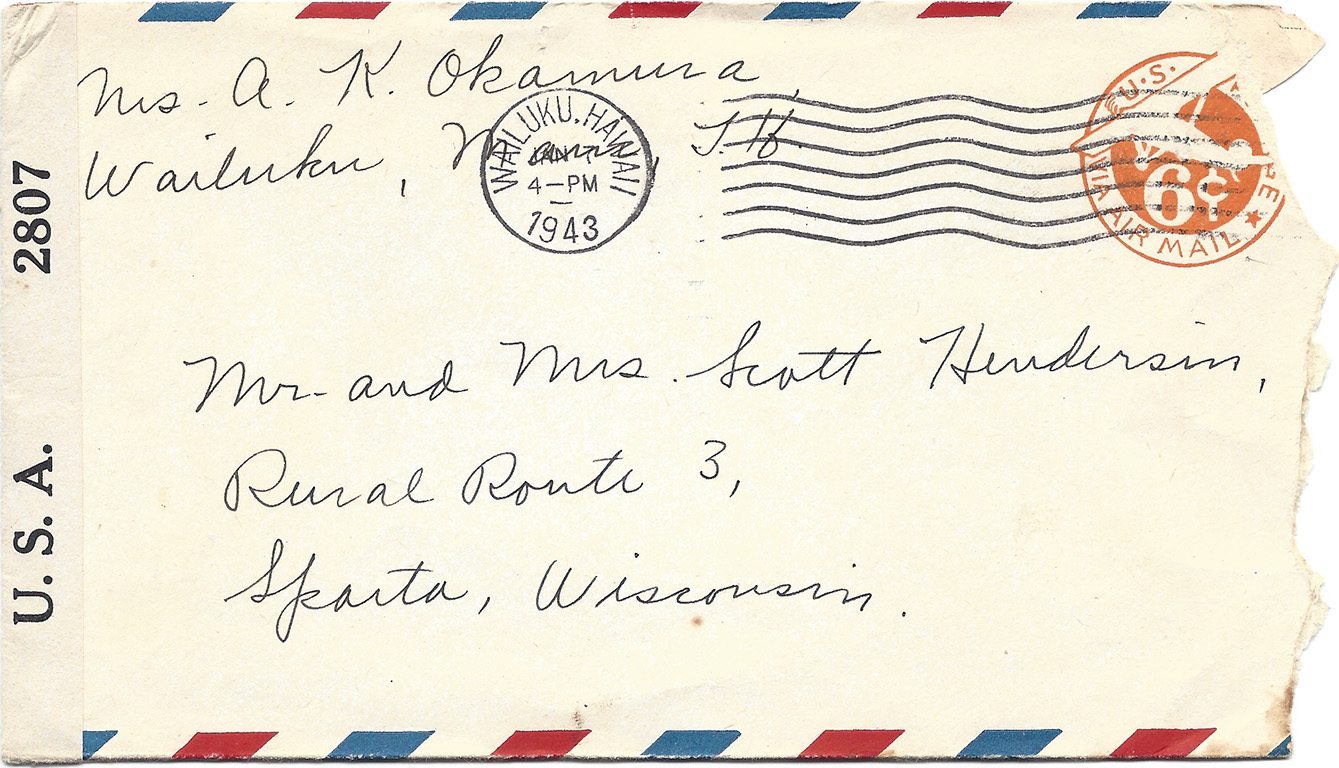 Mrs. A. K. Okamura,
Wailuku, Maui, T.H.
WAILUKU, HAWAII
JAN
4-PM
1943
U.S.
VIA AIR MAIL
6¢
Mr. and Mrs. Scott Hendersin,
Rural Route 3,
Sparta, Wisconsin.
U. S. A. 2807